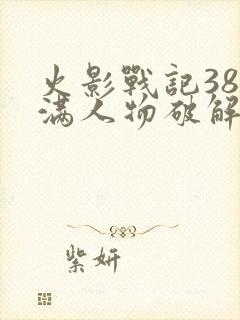 火影戰記38
满人物破解
紫妍